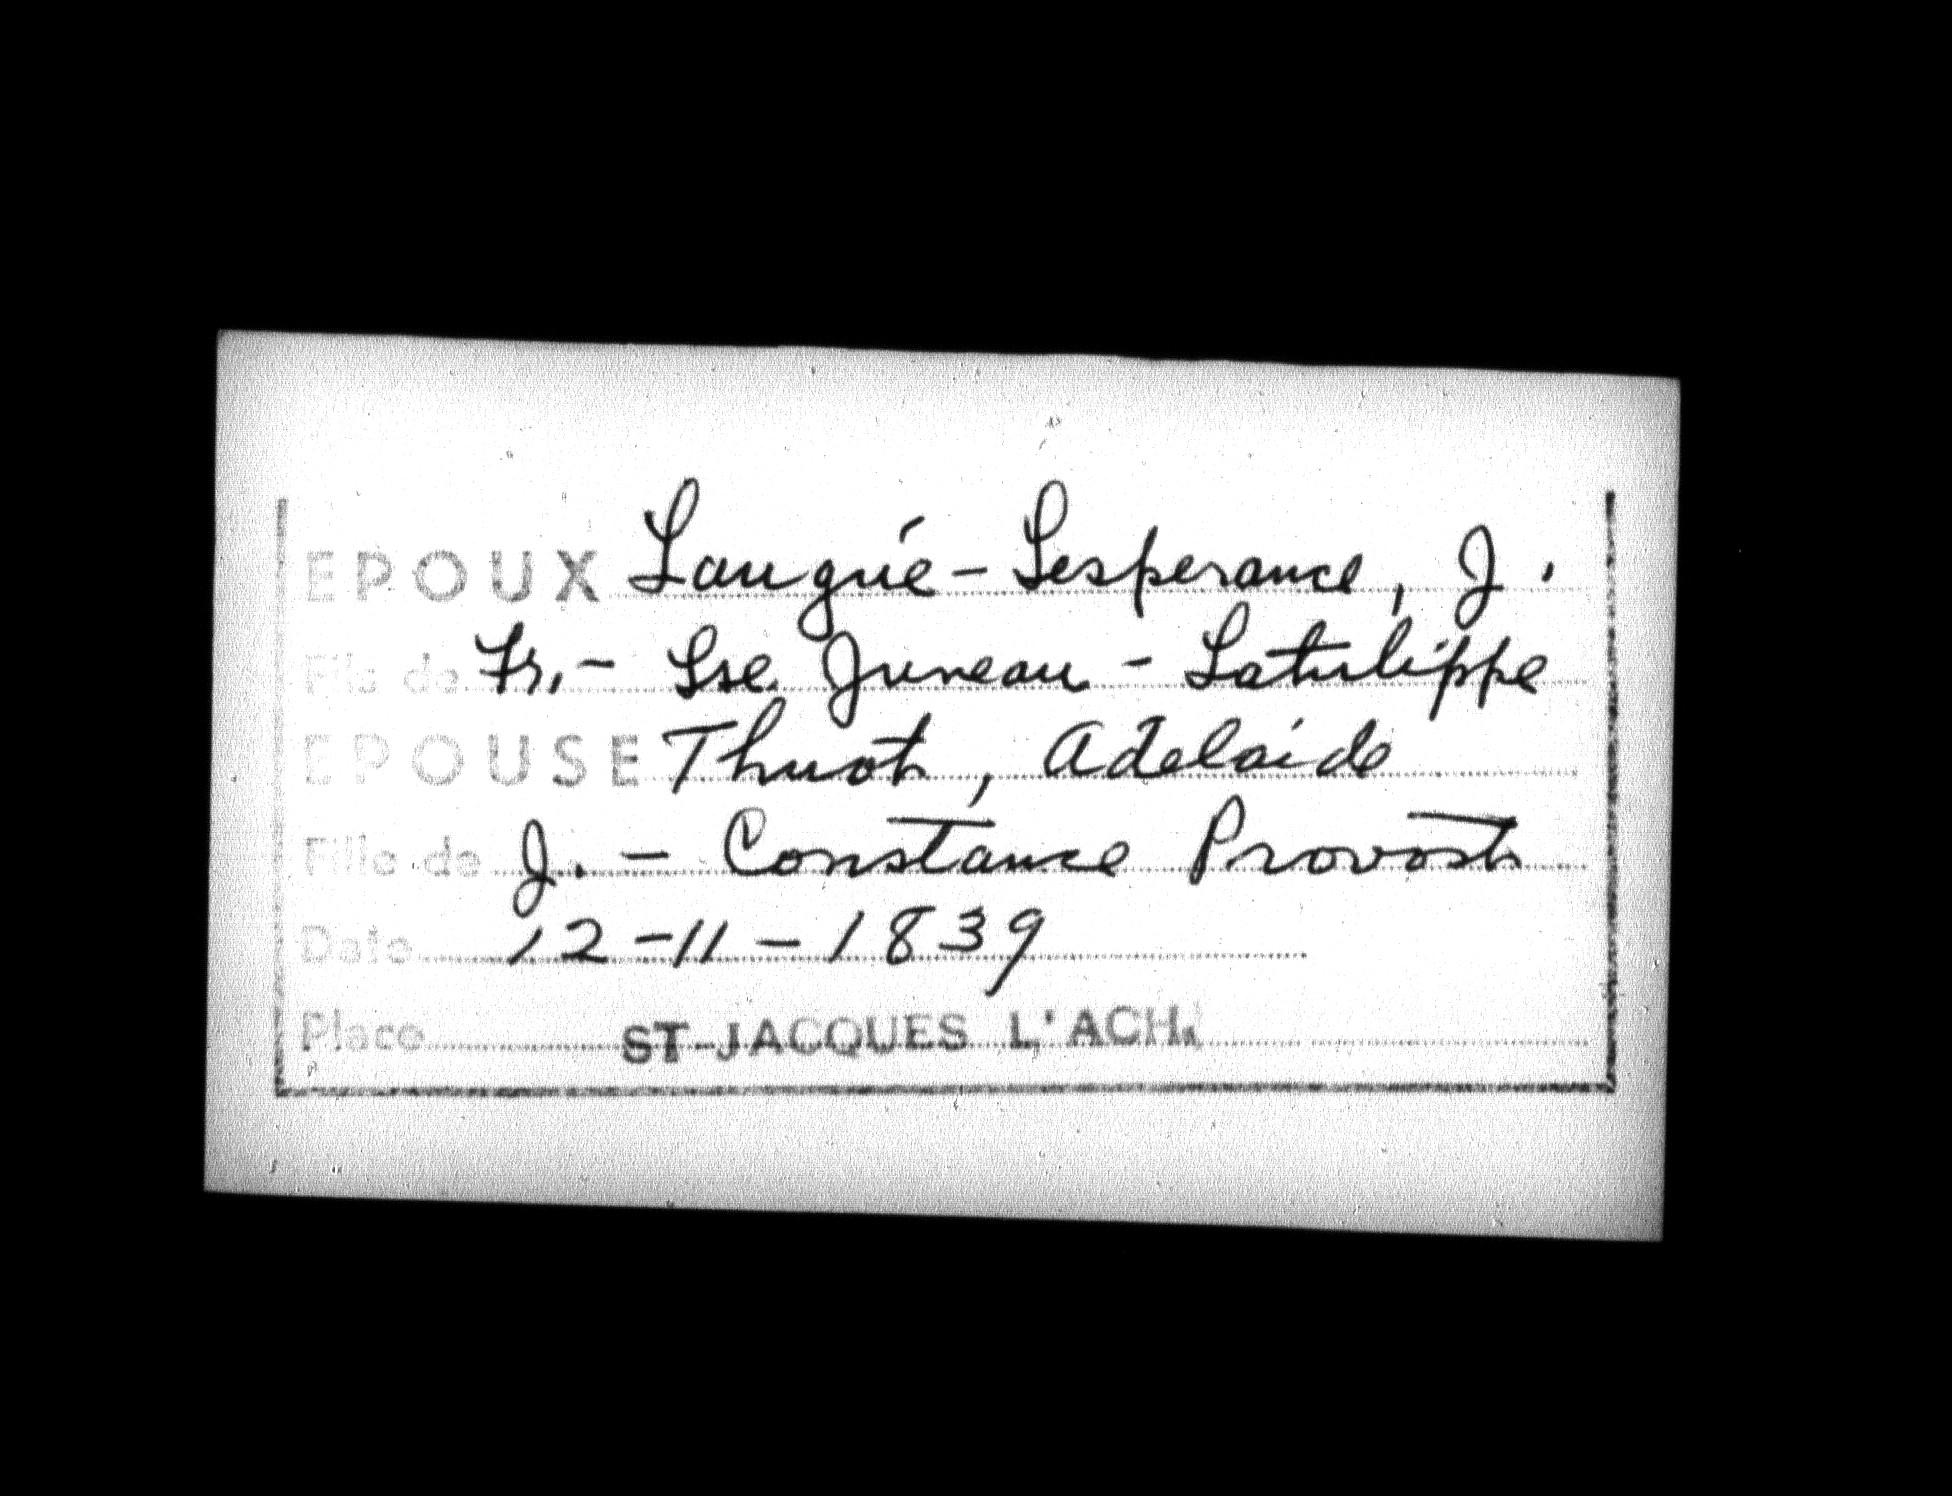 EPOUX Laugué - Lesperance, J.
Fils de Fr. - Lse Juneau - Latulippe
EPOUSE Thuot, Adelaide
Fille de J. - Constance Provost
Date 12-11-1839
Place ST-JACQUES L'ACH.